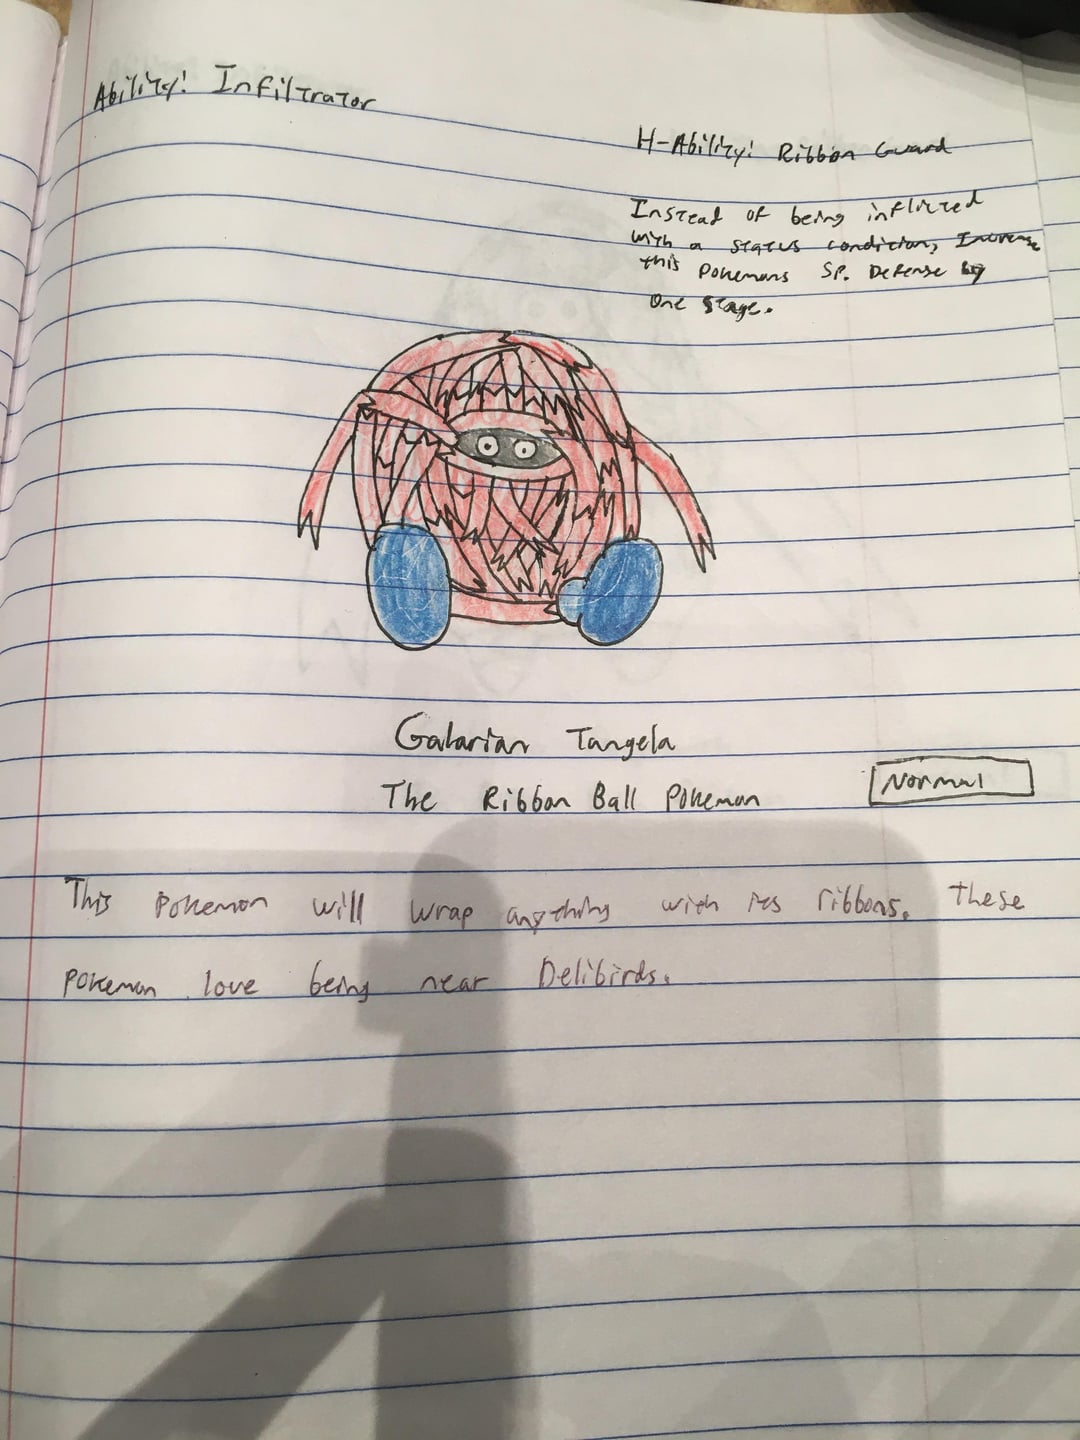 Ability: Infiltrator
H-Ability: Ribbon Guard
Instead of being inflicted
with a status condition, Increase
this Pokemons SP. Defense by
One Stage.
Galarian Tangela
The Ribbon Ball Pokemon
Normal
This Pokemon will wrap anything with its ribbons. These
Pokemon love being near Delibirds.